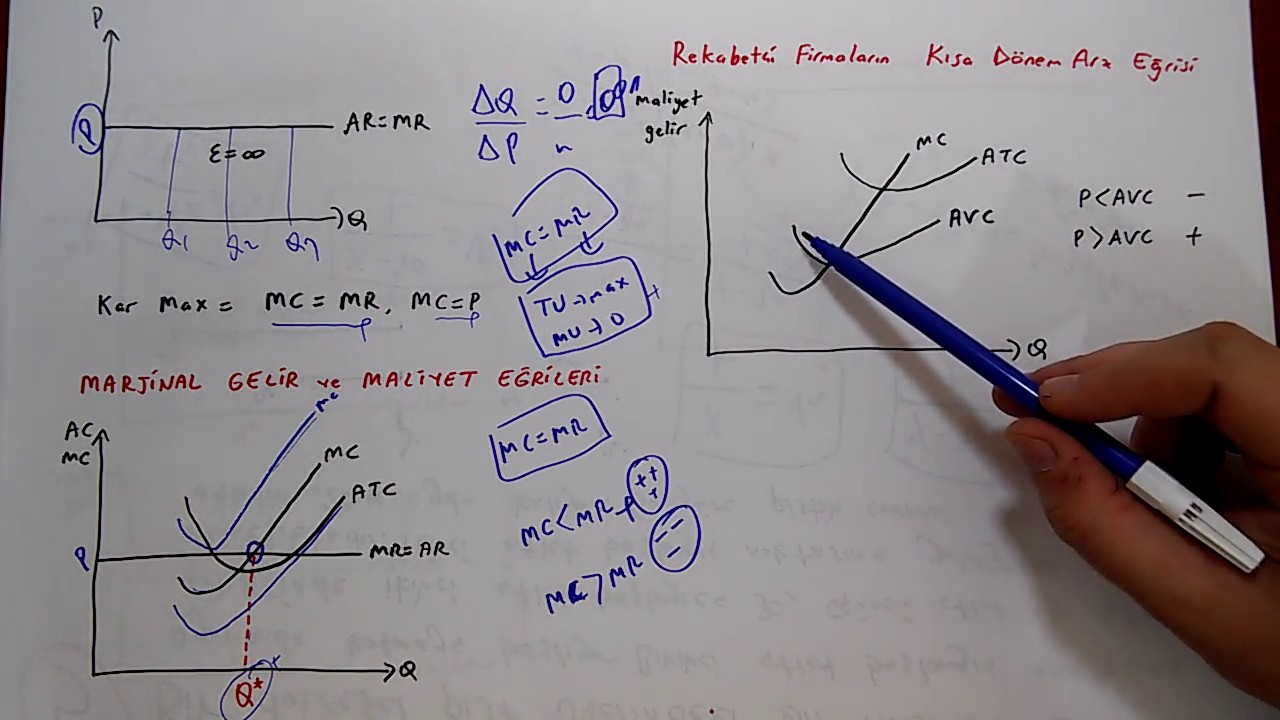 P
P
AR=MR
ε=∞
Q
Q1
Q2
Kar Max = MC = MR, MC=P
ΔQ = 0
ΔP
MC=MR
TU→max
MU→0
MARJİNAL GELİR ve MALİYET EĞRİLERİ
AC
MC
MC
MC
ATC
P
MR=AR
Q
Q*
MC=MR
MC<MR → +++
MC>MR ---
Rekabetçi Firmaların Kısa Dönem Arz Eğrisi
maliyet
gelir
MC
ATC
AVC
Q
P<AVC -
P>AVC +